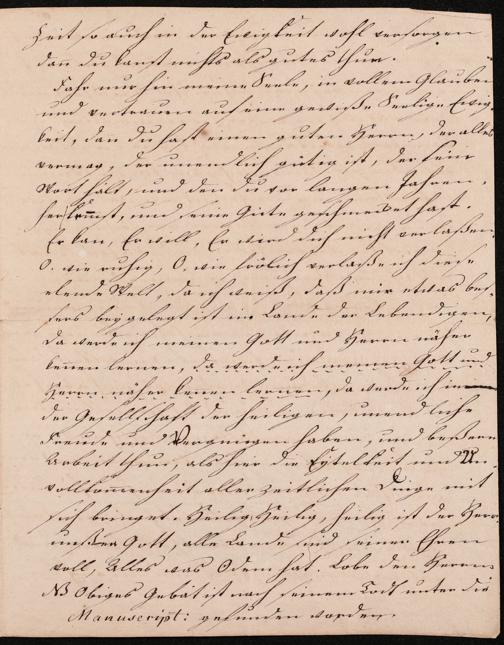 Zeit so auch in der Ewigkeit wohl versorgen
dan du kanst nichts als gutes thun.
Fahr nur hin meine Seele, in vollem Glauben
und vertrauen auf eine gewiße Seelige Ewig-
keit, dan du hast einen guten Herrn, der alles
vermag, der unendlich gütig ist, der sein
Wort hält, und den du vor langen Jahren
und seine Güte geschmecket hast.
Er kan, Er will, Er wird dich nicht verlaßen,
O. wie ruhig, O. wie frölich verlaße ich diese
elende Welt, da ich weiß, daß mir etwas bes-
sers beygelegt ist im Lande der Lebendigen,
da werde ich meinen Gott und Herrn näher
kennen lernen, da werde ich meinen Gott und
Herrn näher kenen lernen, da werde ich in
der Gesellschaft der heiligen, unendliche
Freude und Vergnügen haben, und beßere
Arbeit thun, als hier die Eytelkeit und Un-
vollkomenheit aller zeitlichen Dinge mit
sich bringet. Heilig, Heilig, heilig ist der Herr
unßer Gott, alle Lande sind seiner Ehren
voll, Alles was Odem hat. Lobe den Herrn
NB Obiges Gebät ist nach seinem Todt unter die
Manuscript: gefunden worden.